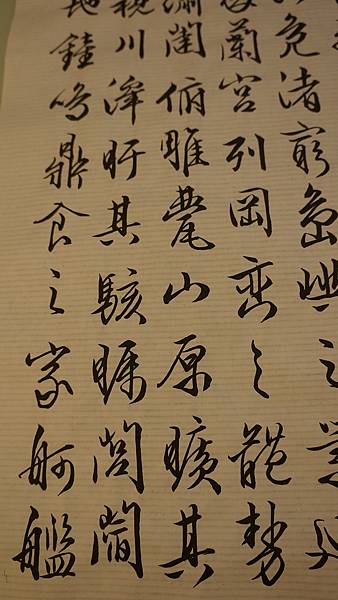 鳧渚窮島嶼之縈
蘭宮列岡巒之體勢
繡闥俯雕甍山原曠其
視川澤盱其駭矚閭閻
地鐘鳴鼎食之家舸艦